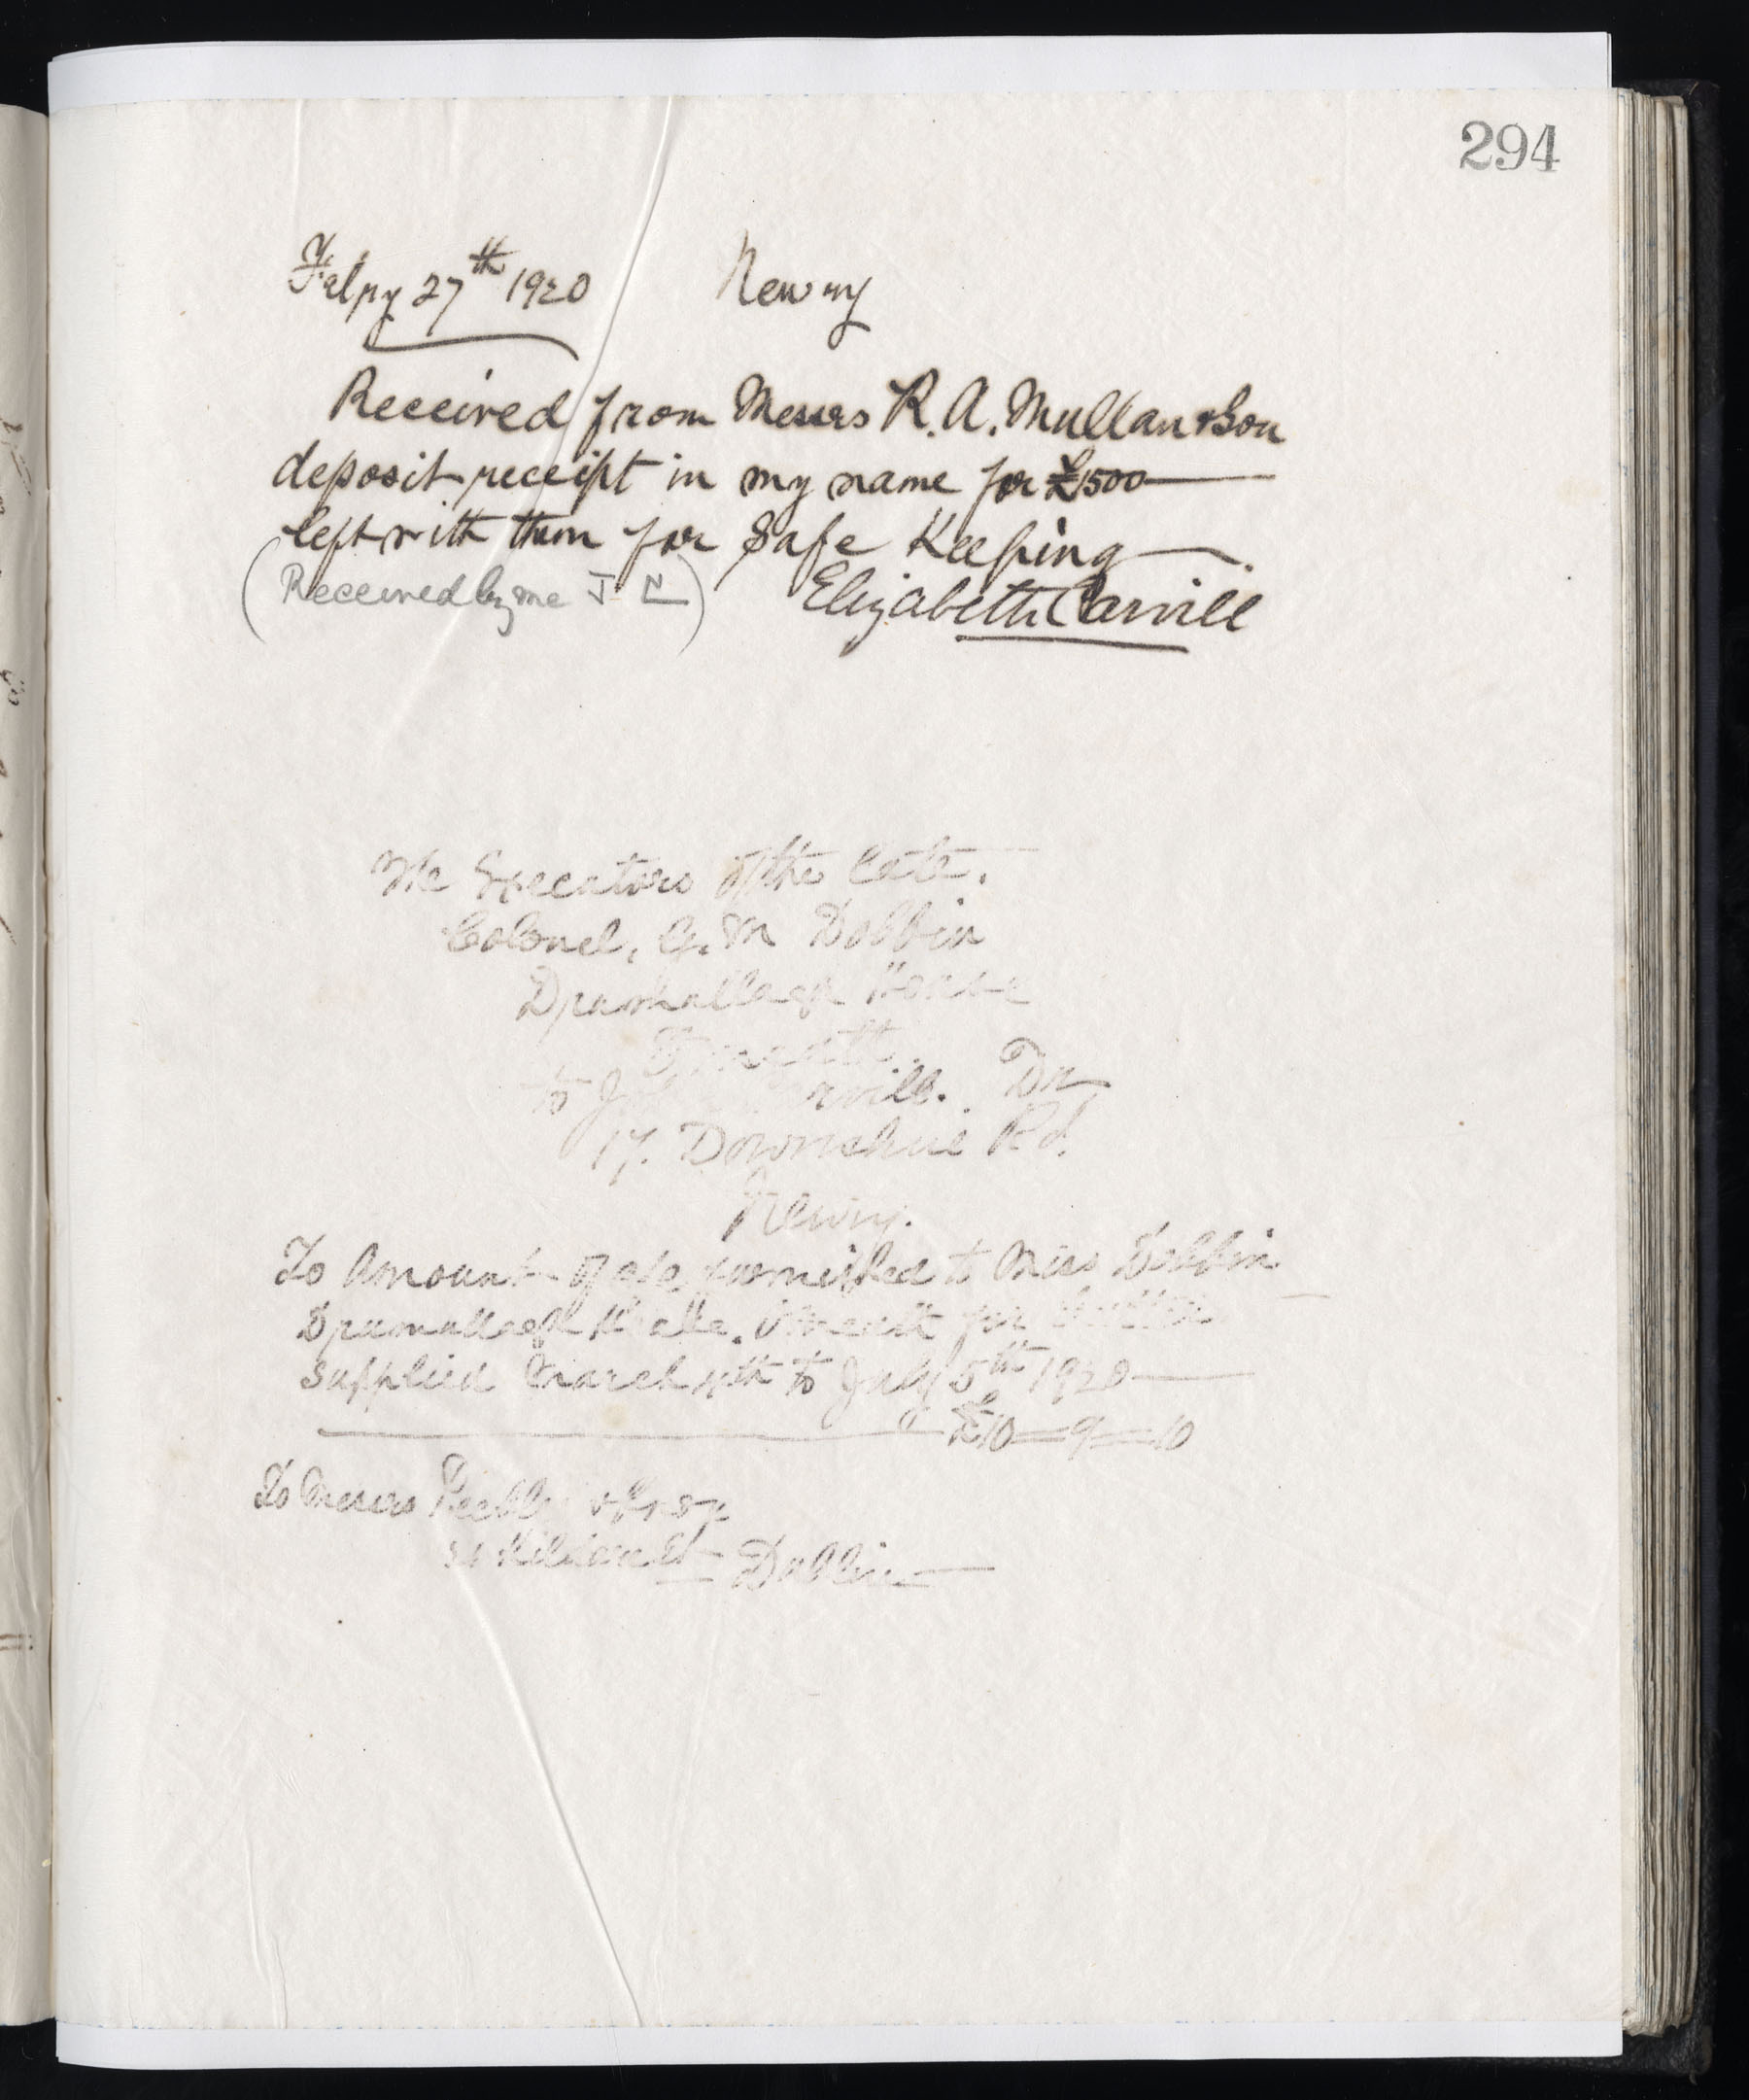 294
Febry 27th 1920 Newry
Received from Messrs R. A. Mullan & Son
deposit receipt in my name for £1500
left with them for Safe Keeping
(Received by me J N) Elizabeth Carvill
The Executors of the late.
Colonel, G. M Dobbin
Drumullagh House
Omeath.
to J rvill. Dr
17. Downshire Rd.
Newry.
To Amount of a/c furnished to Miss Dobbin
Drumullagh Omeath for
Supplied March to July 5th 1920
£10=9=10
To Messrs
Kildare St Dublin